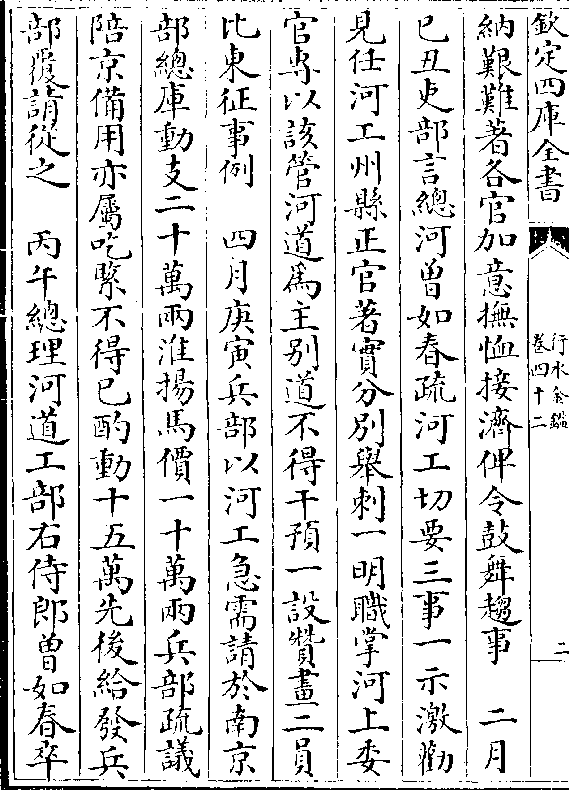 欽定四庫全書
行水金鑑
卷四十二
二
納艱難著各官加意撫恤接濟俾令鼓舞趨事　二月
己丑吏部言總河曾如春疏河工切要三事一示激勸
見任河工州縣正官著實分別舉刺一明職掌河上委
官專以該管河道為主別道不得干預一設贊畫二員
比東征事例　四月庚寅兵部以河工急需請於南京
部總庫動支二十萬兩淮揚馬價一十萬兩兵部疏議
陪京備用亦屬吃緊不得已酌動十五萬先後給發兵
部覆請從之　丙午總理河道工部右侍郎曾如春卒